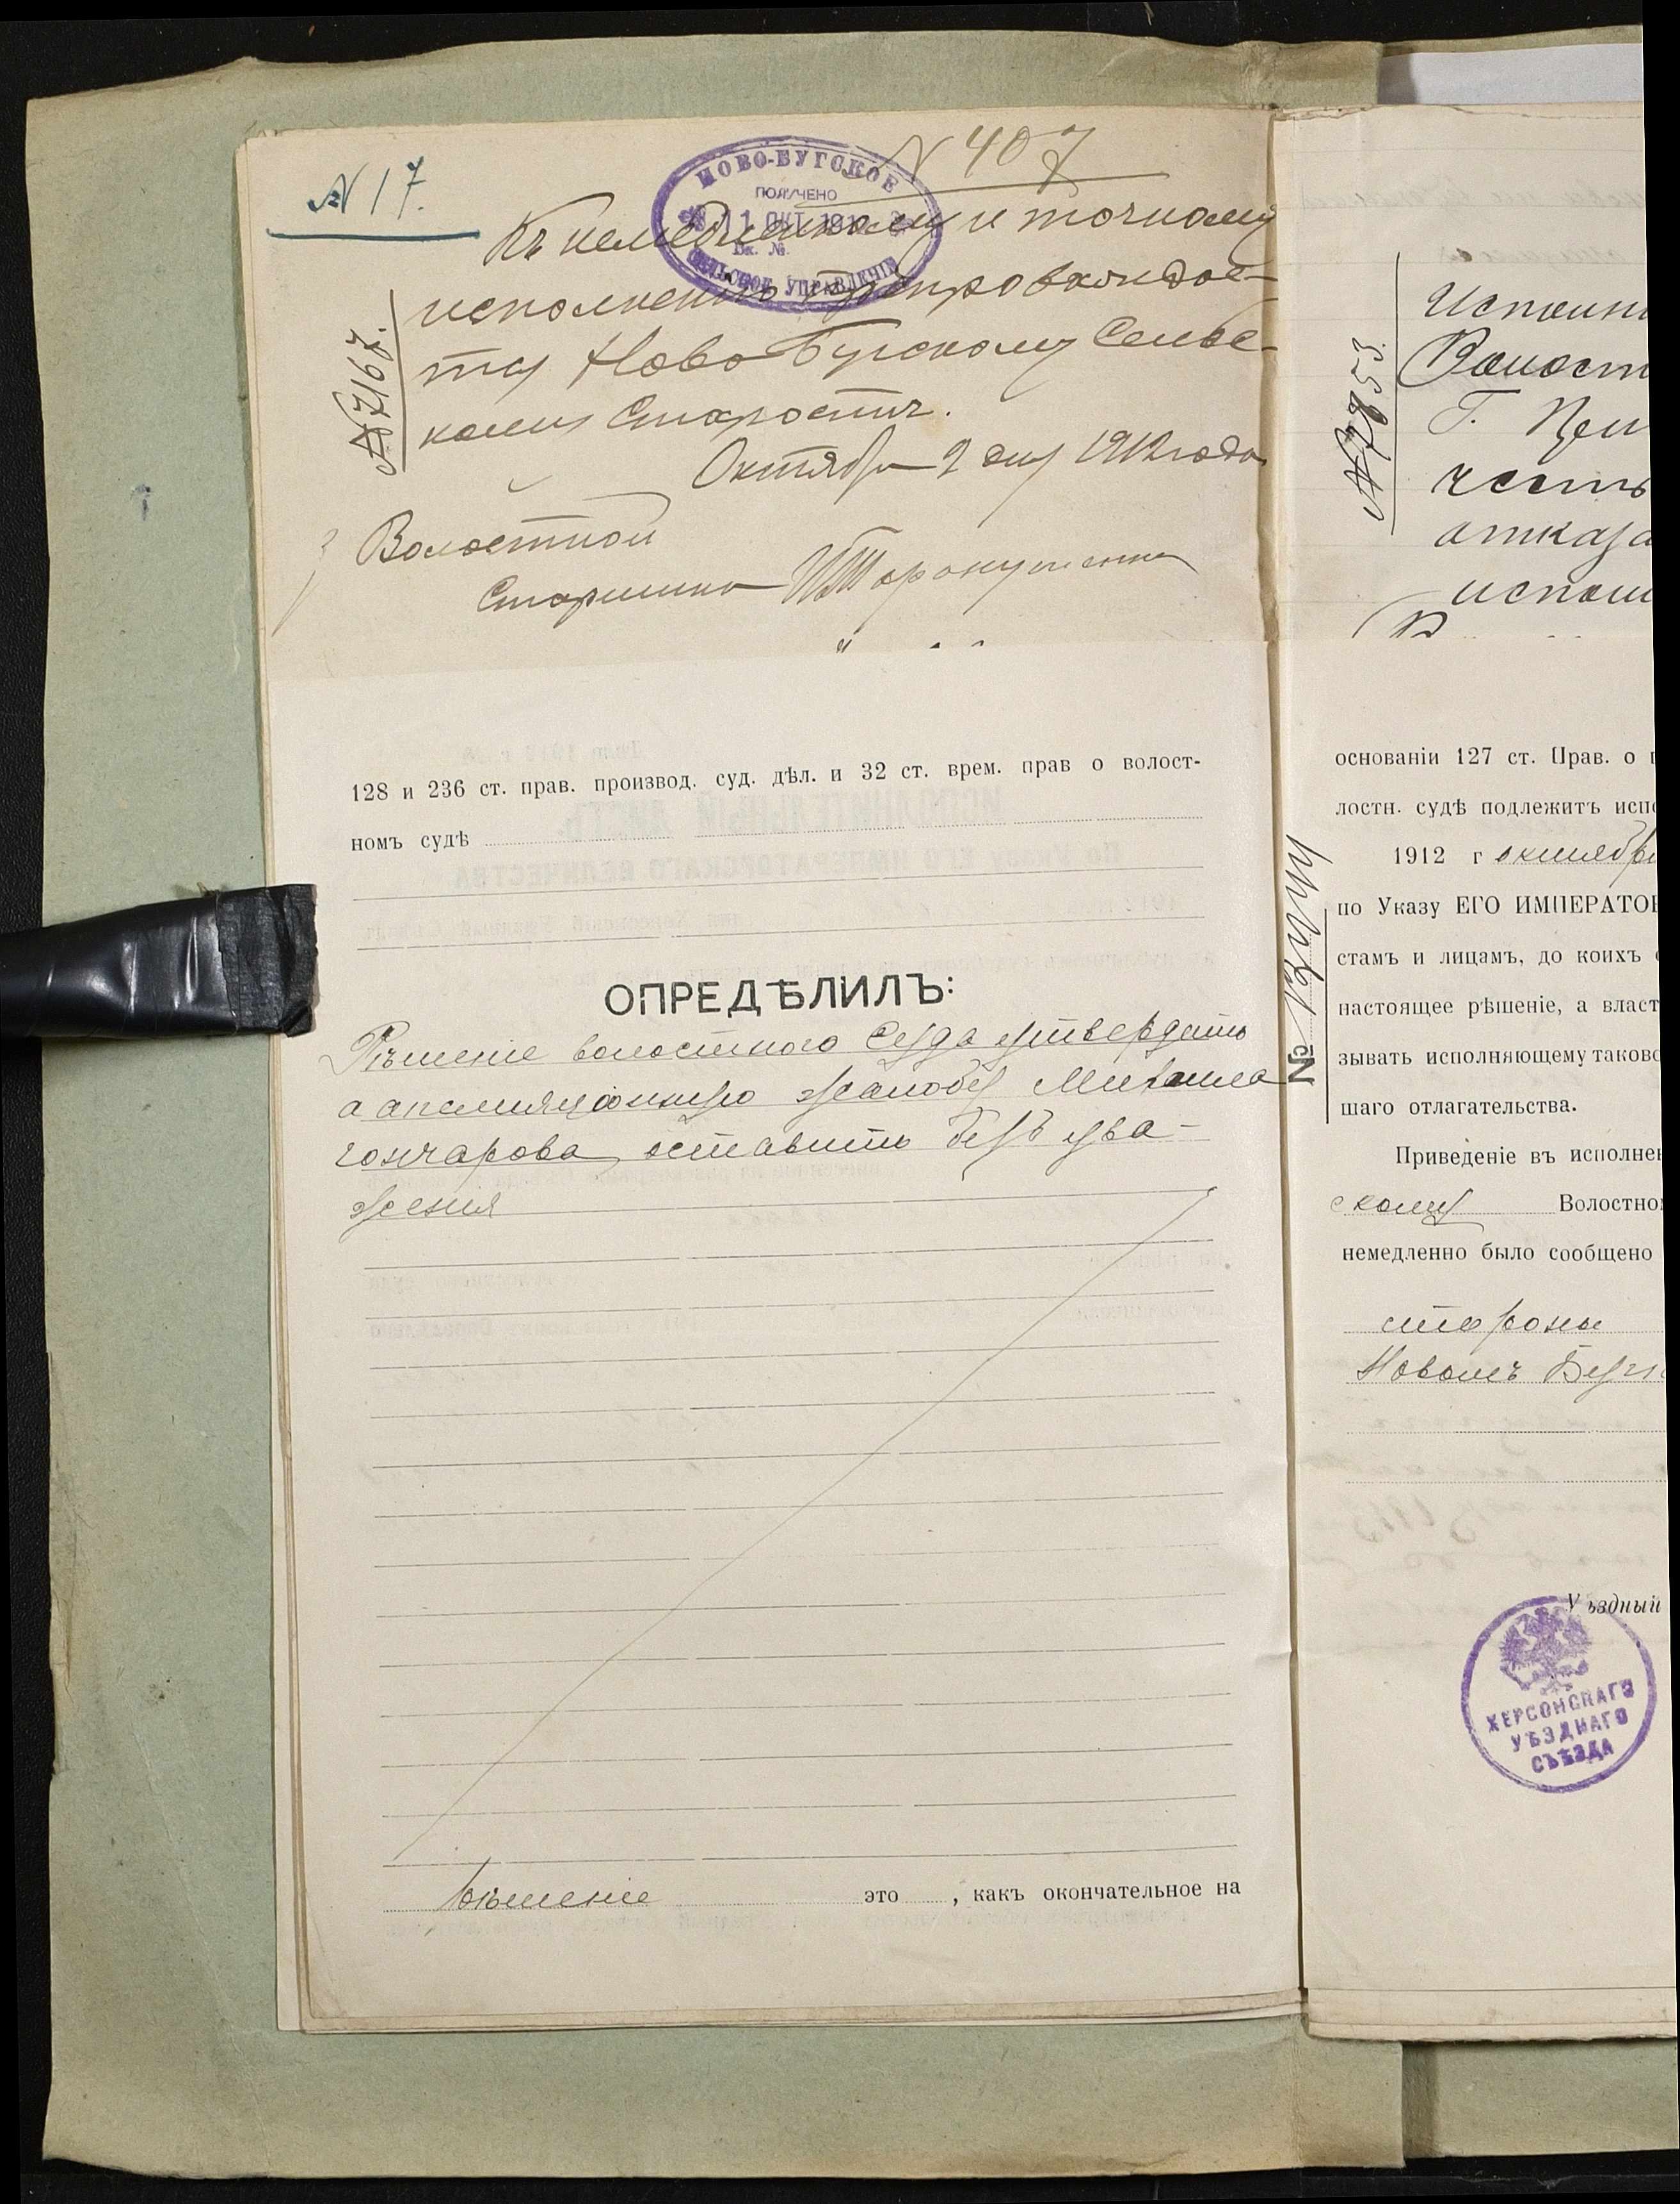 № 17.
№ 407
НОВО-БУГСКОЕ
ПОЛУЧЕНО
11 ОКТ. 191
Вх. №
СЕЛЬСКОЕ УПРАВЛЕНІЕ
№ 7167.
Къ немедленному и точному
исполненію препровождае-
тся Ново-Бугскому Сельс-
кому Старостѣ.
Октября 9 дня 1912 года
Волостной
Старшина
128 и 236 ст. прав. производ. суд. дѣл. и 32 ст. врем. прав о волост-
номъ судѣ
ОПРЕДѢЛИЛЪ:
Рѣшеніе волостного Суда утвердить
а апелляціонную жалобу Михаила
гончарова оставить безъ ува-
женія
Рѣшеніе это , какъ окончательное на
№ 7853.
Исполни
Волост
Г. Пре
честь
отказа
испол
основаніи 127 ст. Прав. о п
лостн. судѣ подлежитъ испо
1912 г октября
по Указу ЕГО ИМПЕРАТОР
стамъ и лицамъ, до коихъ с
настоящее рѣшеніе, а власт
зывать исполняющему таково
шаго отлагательства.
№
Приведеніе въ исполнен
скому Волостно
немедленно было сообщено
стороны
Новомъ Буг
Уѣздный
ХЕРСОНСКАГО
УѢЗДНАГО
СЪѢЗДА